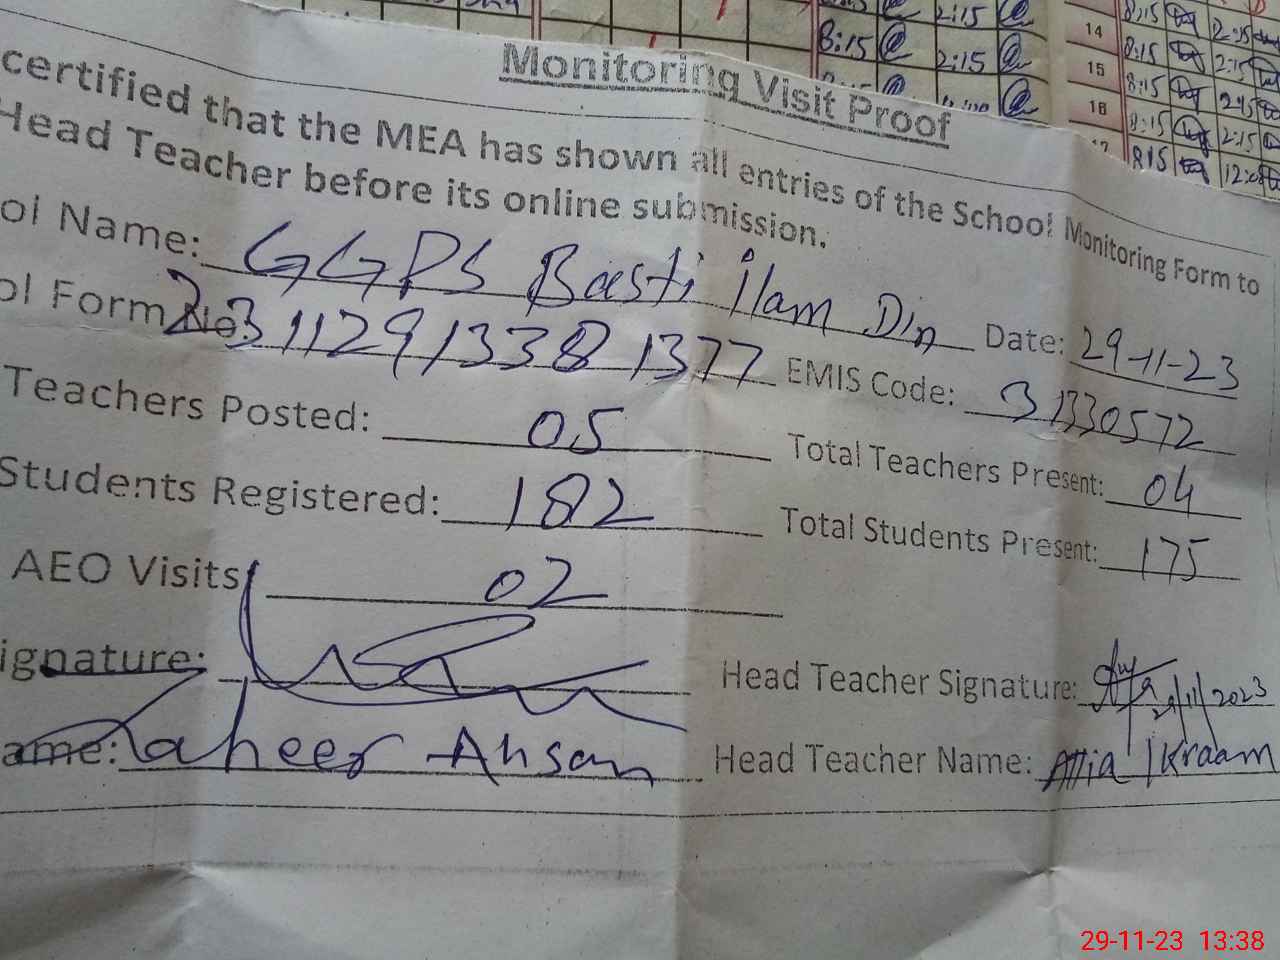 Monitoring Visit Proof
certified that the MEA has shown all entries of the School Monitoring Form to
Head Teacher before its online submission.
ol Name: GGPS Basti Ilam Din Date: 29-11-23
ol Form No: 23112913381377 EMIS Code: 31330572
Teachers Posted: 05 Total Teachers Present: 04
Students Registered: 182 Total Students Present: 175
AEO Visits 02
ignature: Head Teacher Signature: 29/11/2023
ame: Zaheer Ahsan Head Teacher Name: Attia Ikraam
8:15 2:15
14 8:15 2:15
15 8:15 2:15
16 8:15 2:15
17 8:15
29-11-23 13:38